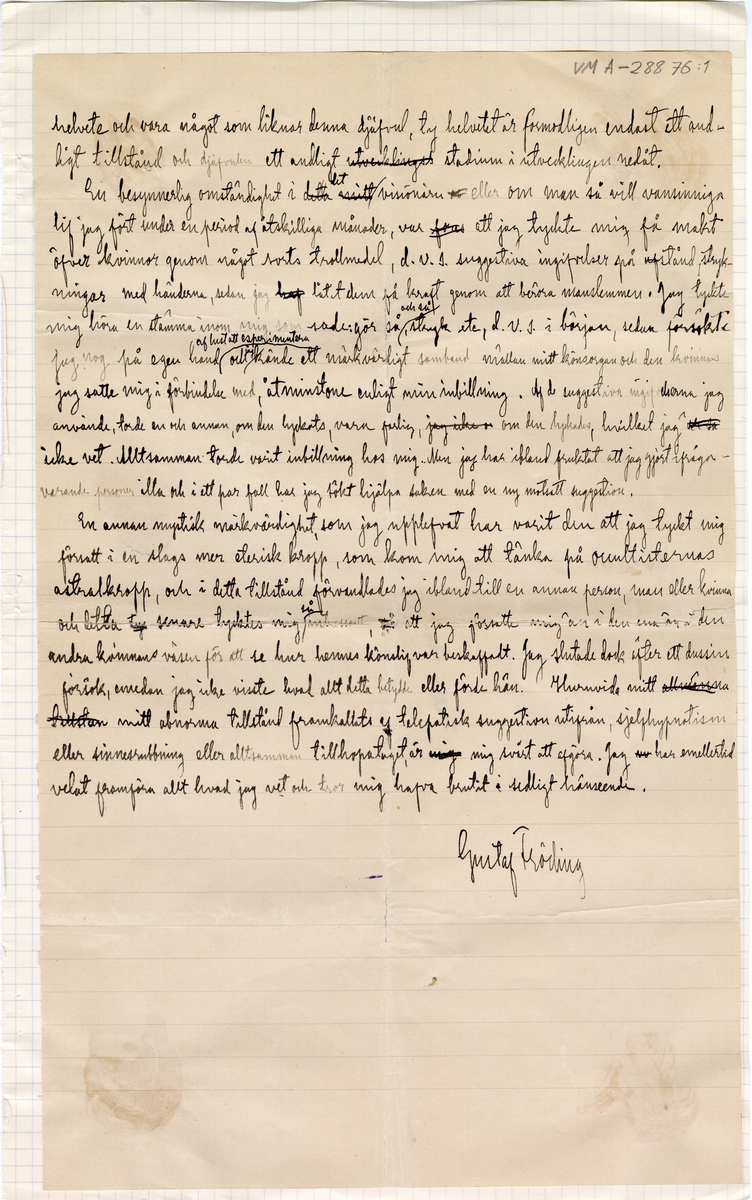 VM A-288 76:1
helvete och vara något som liknar denna djäfvul, ty helvetet är förmodligen endast ett and-
ligt tillstånd och djäfvulen ett andligt utvecklings stadium i utvecklingen nedåt.
En besynnerlig omständighet i detta mitt det visionära eller om man så vill vansinniga
lif jag fört under en period af åtskilliga månader, var att jag tyckte mig få makt
öfver kvinnor genom något sorts trollmedel, d.v.s. suggestiva ingifvelser på afstånd, stryk-
ningar med händerna, sedan jag låtit dem få kraft genom att beröra manslemmen. Jag tyckte
mig höra en stämma inom mig som sade: gör så, och så stryk etc, d.v.s. i början, sedan försökte
jag nog på egen hand af lust att experimentera och kände ett märkvärdigt samband mellan mitt könsorgan och den kvinnas
jag satte mig i förbindelse med, åtminstone enligt min inbillning. Af de suggestiva ingifvelserna jag
använde, torde en och annan, om den lyckats, vara farlig, jag icke om den lyckades, hvilket jag
icke vet. Alltsamman torde varit inbillning hos mig. Men jag har ibland fruktat att jag gjort ifrågor-
varande personer illa och i ett par fall har jag sökt hjälpa saken med en ny motsatt suggestion.
En annan mystisk märkvärdighet, som jag upplefvat har varit den att jag tyckt mig
försatt i en slags mer eterisk kropp, som kom mig att tänka på occultisternas
astralkropp, och i detta tillstånd förvandlades jag ibland till en annan person, man eller kvinna
och detta senare tycktes mig så intressant, att jag försatte mig än i den ena än i den
andra kvinnans väsen för att se hur hennes könslif var beskaffadt. Jag slutade dock efter ett dussin
försök, emedan jag icke visste hvad allt detta betydde eller förde hän. Huruvida mitt allmänna
tillstån mitt abnorma tillstånd framkallats af telepatisk suggestion utifrån, sjelfhypnotism
eller sinnesrubbning eller alltsamman tillhopataget, är mig mig svårt att afgöra. Jag har emellertid
velat framföra allt hvad jag vet och tror mig hafva brutit i sedligt hänseende.
Gustaf Fröding